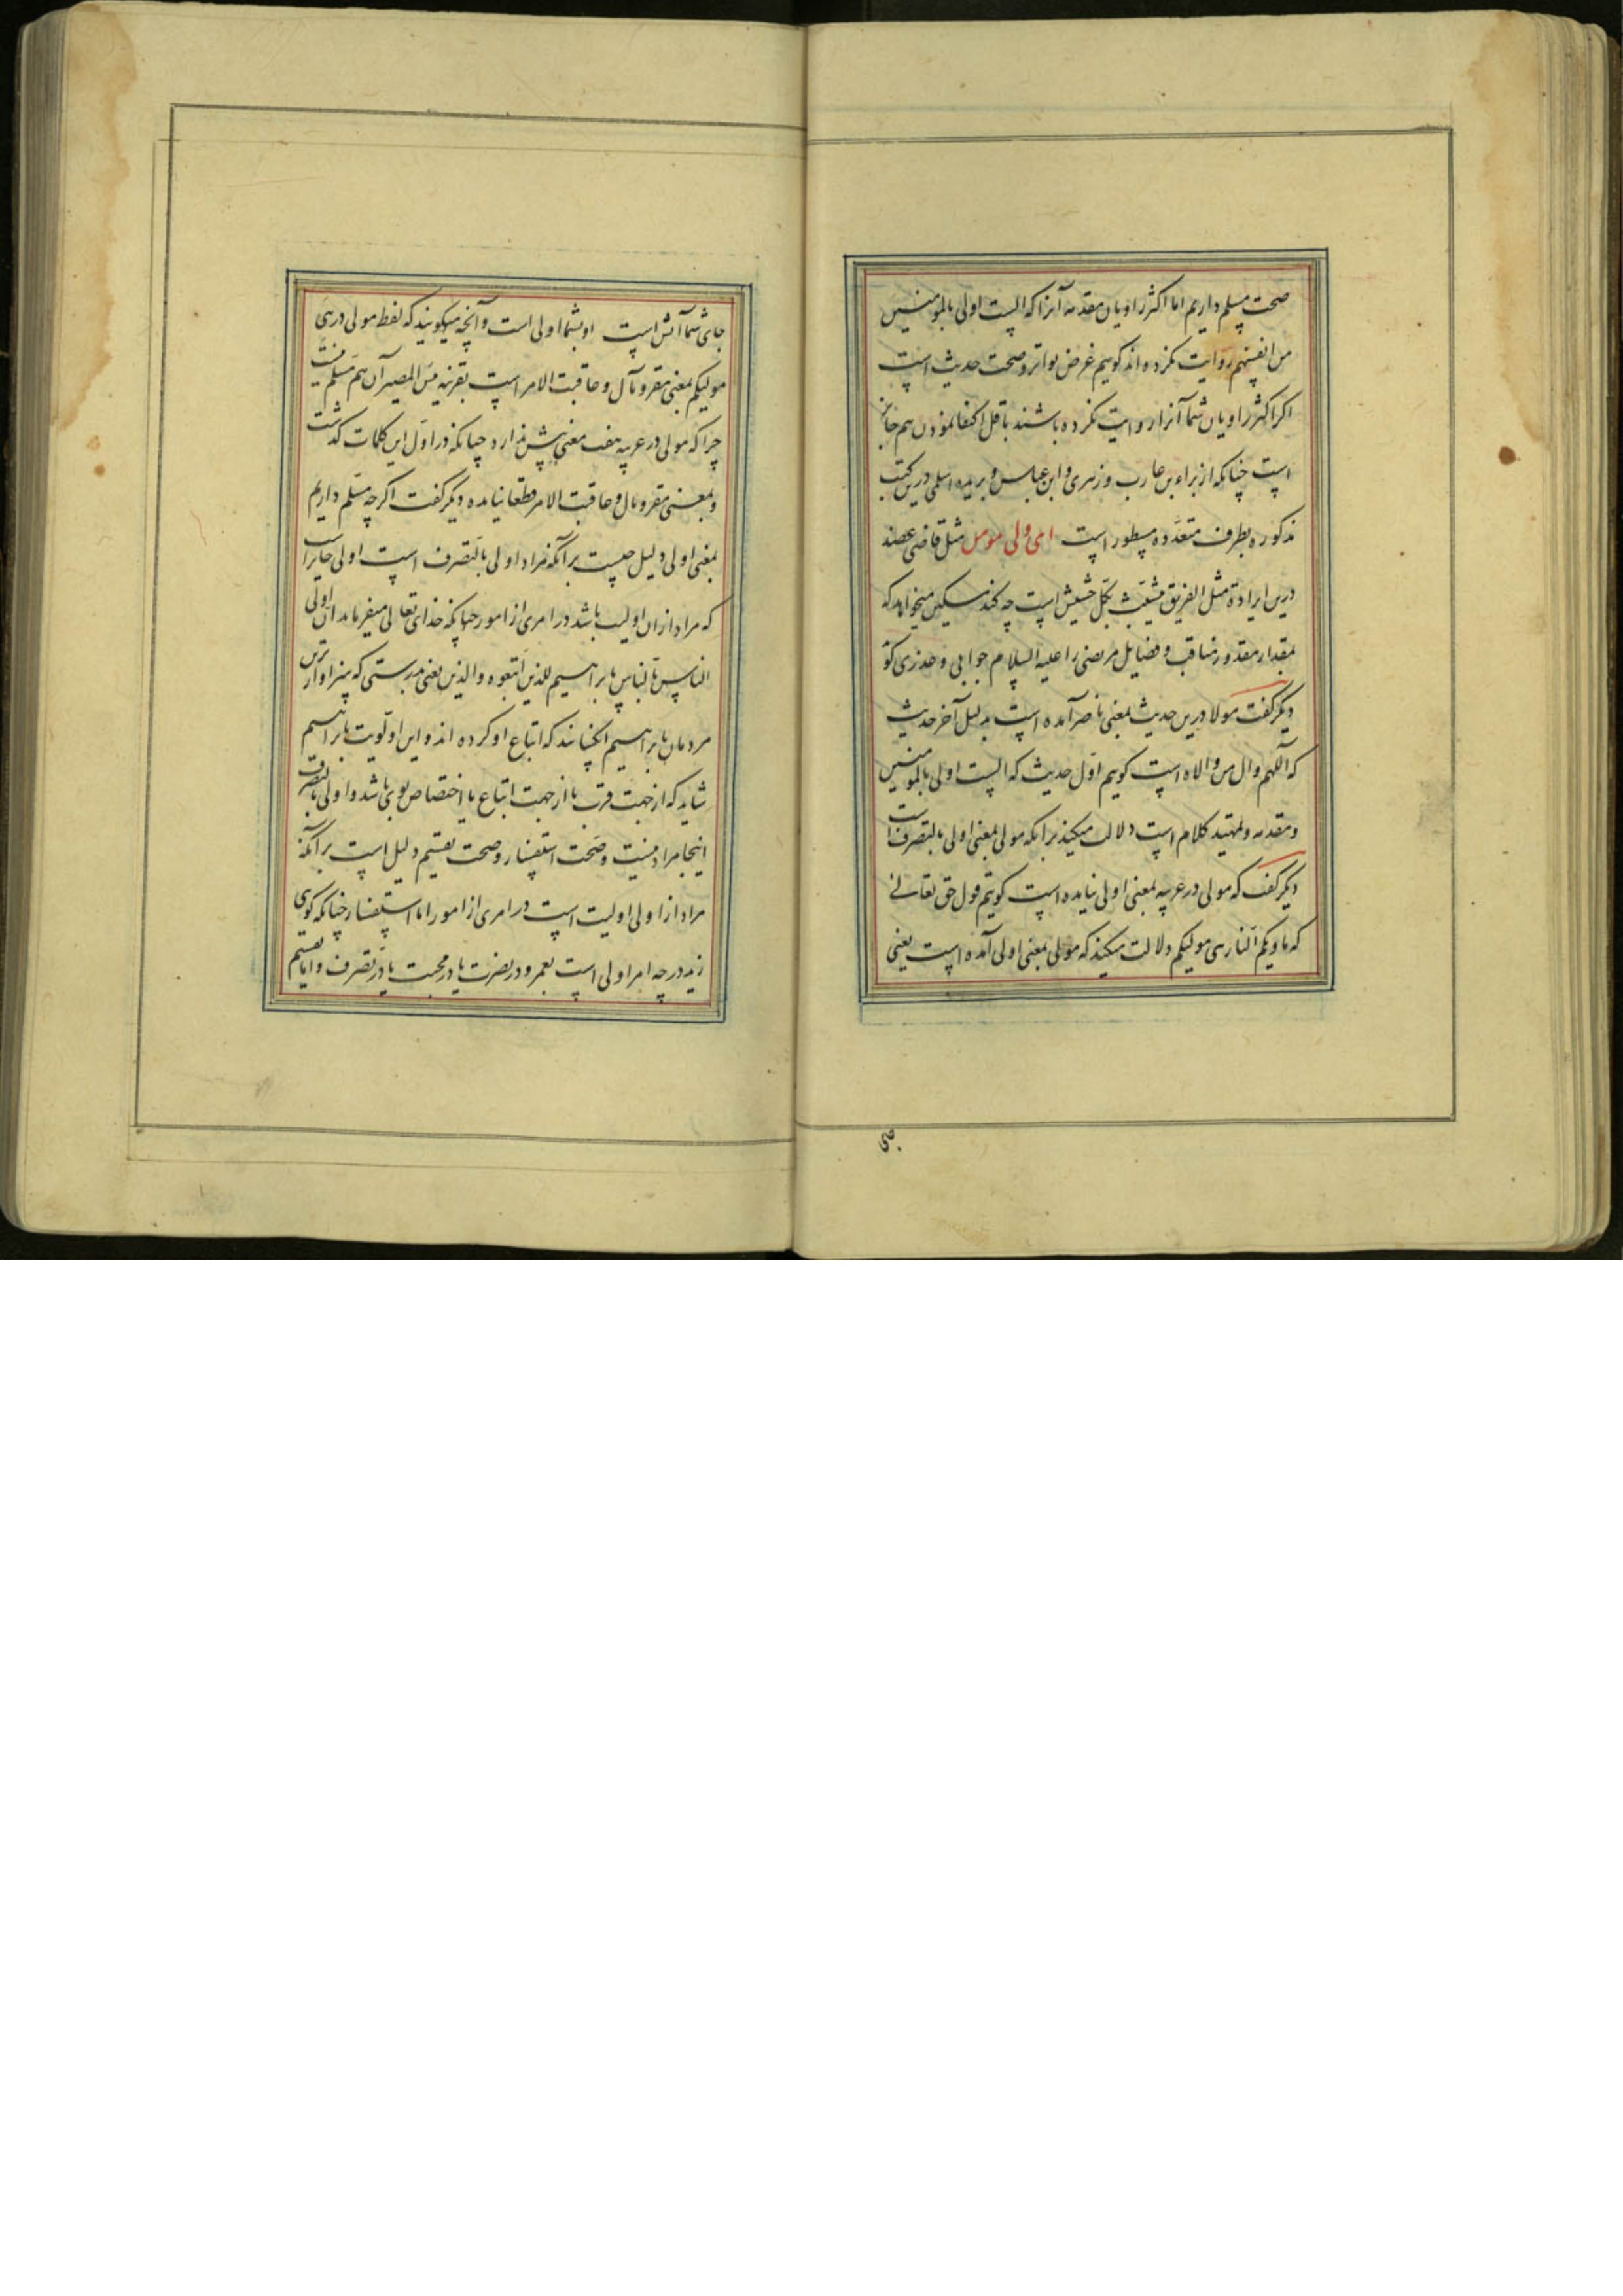 صحت مسلم داریم اما اکثر راویان مقدمه آنرا که الست اولی بالمومنین
من انفسهم روایت نکرده اند کوییم غرض تواتر و صحت حدیث است
اکر اکثر راویان شما آنرا روایت نکرده باشند باقل اکتفا نمودن هم جایز
است چنانکه از براء بن عازب و زهری و ابن عباس و بریده اسلمی درین کتب
مذکوره بطرف متعدده مسطور است ای ولی مومن مثل قاضی عضد
درین ایراد مثل الغریق یتشبث بکل حشیش است چه کند مسکین میخواهد که
بمقدار مقدور مناقب و فضایل مرتضی را علیه السلام جوابی و عذری کو
دیکر کفت مولا درین حدیث بمعنی ناصر آمده است بدلیل آخر حدیث
که اللهم وال من والاه است کوییم اول حدیث که الست اولی بالمومنین
و مقدمه و تمهید کلام است دلالت میکند بر آنکه مولی بمعنی اولی بالتصرف است
دیکر کفت که مولی در عربیه بمعنی اولی نیامده است کوییم قول حق تعالی
که ماویکم النار هی مولیکم دلالت میکند که مولی بمعنی اولی آمده است یعنی
جای
جای شما آتش است او بشما اولی است و آنچه میکویند که لفظ مولی در هی
مولیکم بمعنی مقر و مآل و عاقبت الامر است بقرینه بئس المصیر آن هم مسلم نیست
چرا که مولی در عربیه هفت معنی بیش ندارد چنانکه در اول این کلمات کذشت
و بمعنی مقر و مال و عاقبت الامر قطعا نیامده دیکر کفت اکرچه مسلم داریم
بمعنی اولی دلیل چیست بر آنکه مراد اولی بالتصرف است اولی جایز است
که مراد از ان اولیت باشد در امری از امور چنانکه خذای تعالی میفرماید ان اولی
الناس بابراهیم للذین اتبعوه والذین یعنی بدرستی که سزاوارترین
مردمان بابراهیم آنکسانند که اتباع او کرده اند و این اولویت بابراهیم
شاید که از جهت قرب یا از جهت اتباع یا اختصاص بوی باشد و اولی بالتصرف
اینجا مراد نیست و صحت استفسار و صحت تقسیم دلیل است بر آنکه
مراد از اولی اولیت است در امری از امور اما استفسار چنانکه کوی
زید در چه امر اولی است بعمرو در نصرت یا در محبت یا در تصرف و اما تقسیم